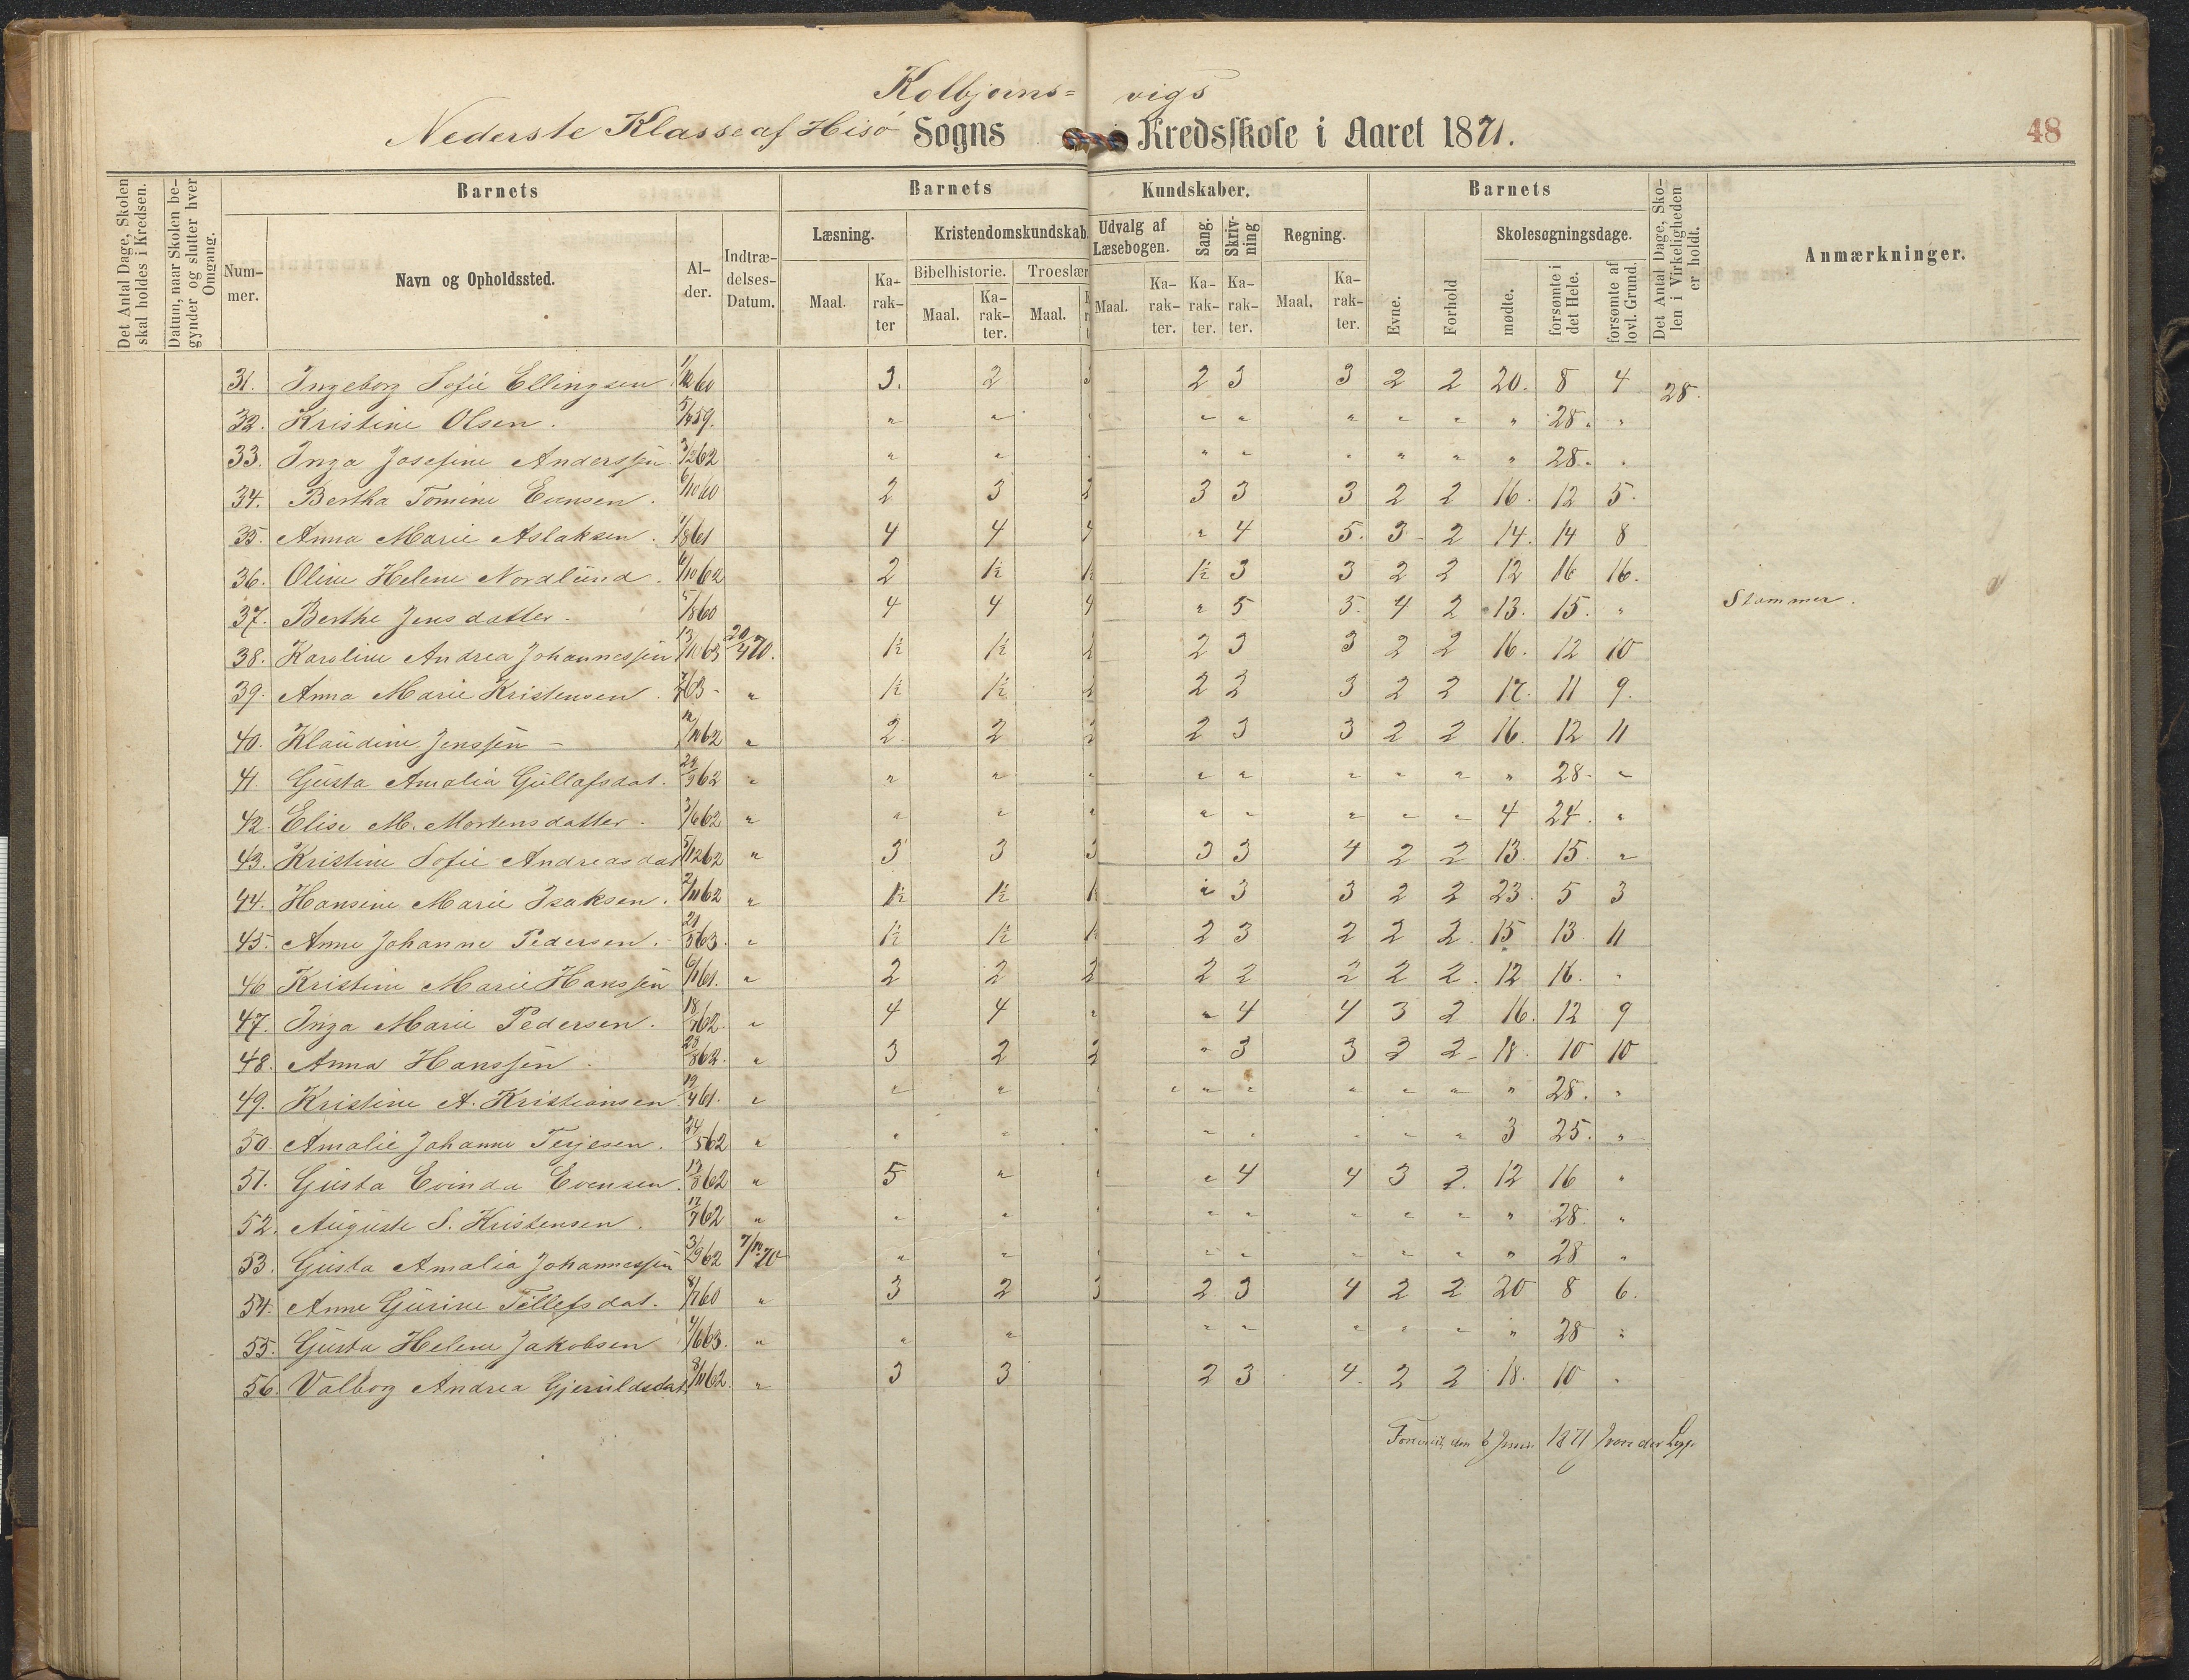 Kolbjørns= vigs
Nederste Klasse af Hisø Sogns Kredsskole i Aaret 1871.
48
Det Antal Dage, Skolen skal holdes i Kredsen.
Datum, naar Skolen begynder og slutter hver Omgang.
Barnets
Barnets Kundskaber.
Barnets
Det Antal Dage, Skolen i Virkeligheden er holdt.
Anmærkninger.
Nummer.
Navn og Opholdssted.
Alder.
Indtrædelses-Datum.
Læsning.
Kristendomskundskab.
Udvalg af Læsebogen.
Sang.
Skrivning
Regning.
Evne.
Forhold
Skolesøgningsdage.
Bibelhistorie.
Troeslær
Maal.
Karakter
Maal.
Karakter.
Maal.
Maal.
Karakter.
Karakter.
Karakter.
Maal.
Karakter.
mødte.
forsømte i det Hele.
forsømte af lovl. Grund.
31. Ingeborg Sofie Ellingsen 60 3. 2 3 2 3 3 2 2 20. 8 4 28.
32. Kristine Olsen. 59. " " " " " " " " " 28. "
33. Inga Josefine Anderssen. 3/12 62 " " " " " " " " " 28. "
34. Bertha Tomine Evensen. 6/10 60 2 3 2 3 3 3 2 2 16. 12 5.
35. Anna Marie Aslaksen. 1/8 61 4 4 4 " 4 5. 3 2 14. 14 8
36. Oline Helene Nordlund. 6/10 62 2 1½ 1½ 1½ 3 3 2 2 12 16 16.
37. Berthe Jensdatter. 5/8 60 4 4 4 " 5 5. 4 2 13. 15. " Stammer.
38. Karoline Andrea Johannessen 13/10 63 20/4 70. 1½ 1½ 2 2 3 3 2 2 16. 12 10
39. Anna Marie Kristensen. 63 " 1½ 1½ 2 2 2 3 2 2 17. 11 9.
40. Klaudine Jenssen 62 " 2. 2 2 2 3 3 2 2 16. 12 11
41. Gusta Amalia Gullafsdat. 62 " " " " " " " " " " 28. "
42. Elise M. Mortensdatter. 3/6 62 " " " " " " " " " 4 24. "
43. Kristine Sofie Andreasdat 5/12 62 " 3 3 3 3 3 4 2 2 13. 15. "
44. Hansine Marie Isaksen. 2/11 62 " 1½ 1½ 1½ " 3 3 2 2 23. 5 3
45. Anne Johanne Pedersen. 63. " 1½ 1½ 1½ 2 3 2 2 2. 15 13 11
46 Kristine Marie Hanssen 61. " 2 2 2 2 2 2 2 2. 12 16. "
47. Inga Marie Pedersen. 62. " 4 4 " " 4 4 3 2 16. 12 9
48. Anna Hanssen. 62. " 3 2 2 " 3 3 3 2 18. 10 10
49. Kristine A. Kristiansen 19/4 61. " " " " " " " " " " 28. "
50. Amalie Johanne Terjesen. 24/5 62 " " " " " " " " " 3 25. "
51. Gusta Evinda Evensen. 13/8 62 " 5 " " " 4 4 3 2. 12 16 "
52. Auguste S. Kristensen. 17/7 62 " " " " " " " " " " 28. "
53. Gusta Amalia Johannessen 3/9 62 7/10 70 " " " " " " " " " 28 "
54. Anne Gurine Tellefsdat. 60 " 3 2 3 2 3 4 2 2 20 8 6.
55. Gusta Helene Jakobsen 4/6 63. " " " " " " " " " " 28 "
56. Valborg Andrea Gjeruldsdat. 8/11 62. " 3 3 " 2 3 4. 2 2 18. 10 "
Forevist, den 6 1871